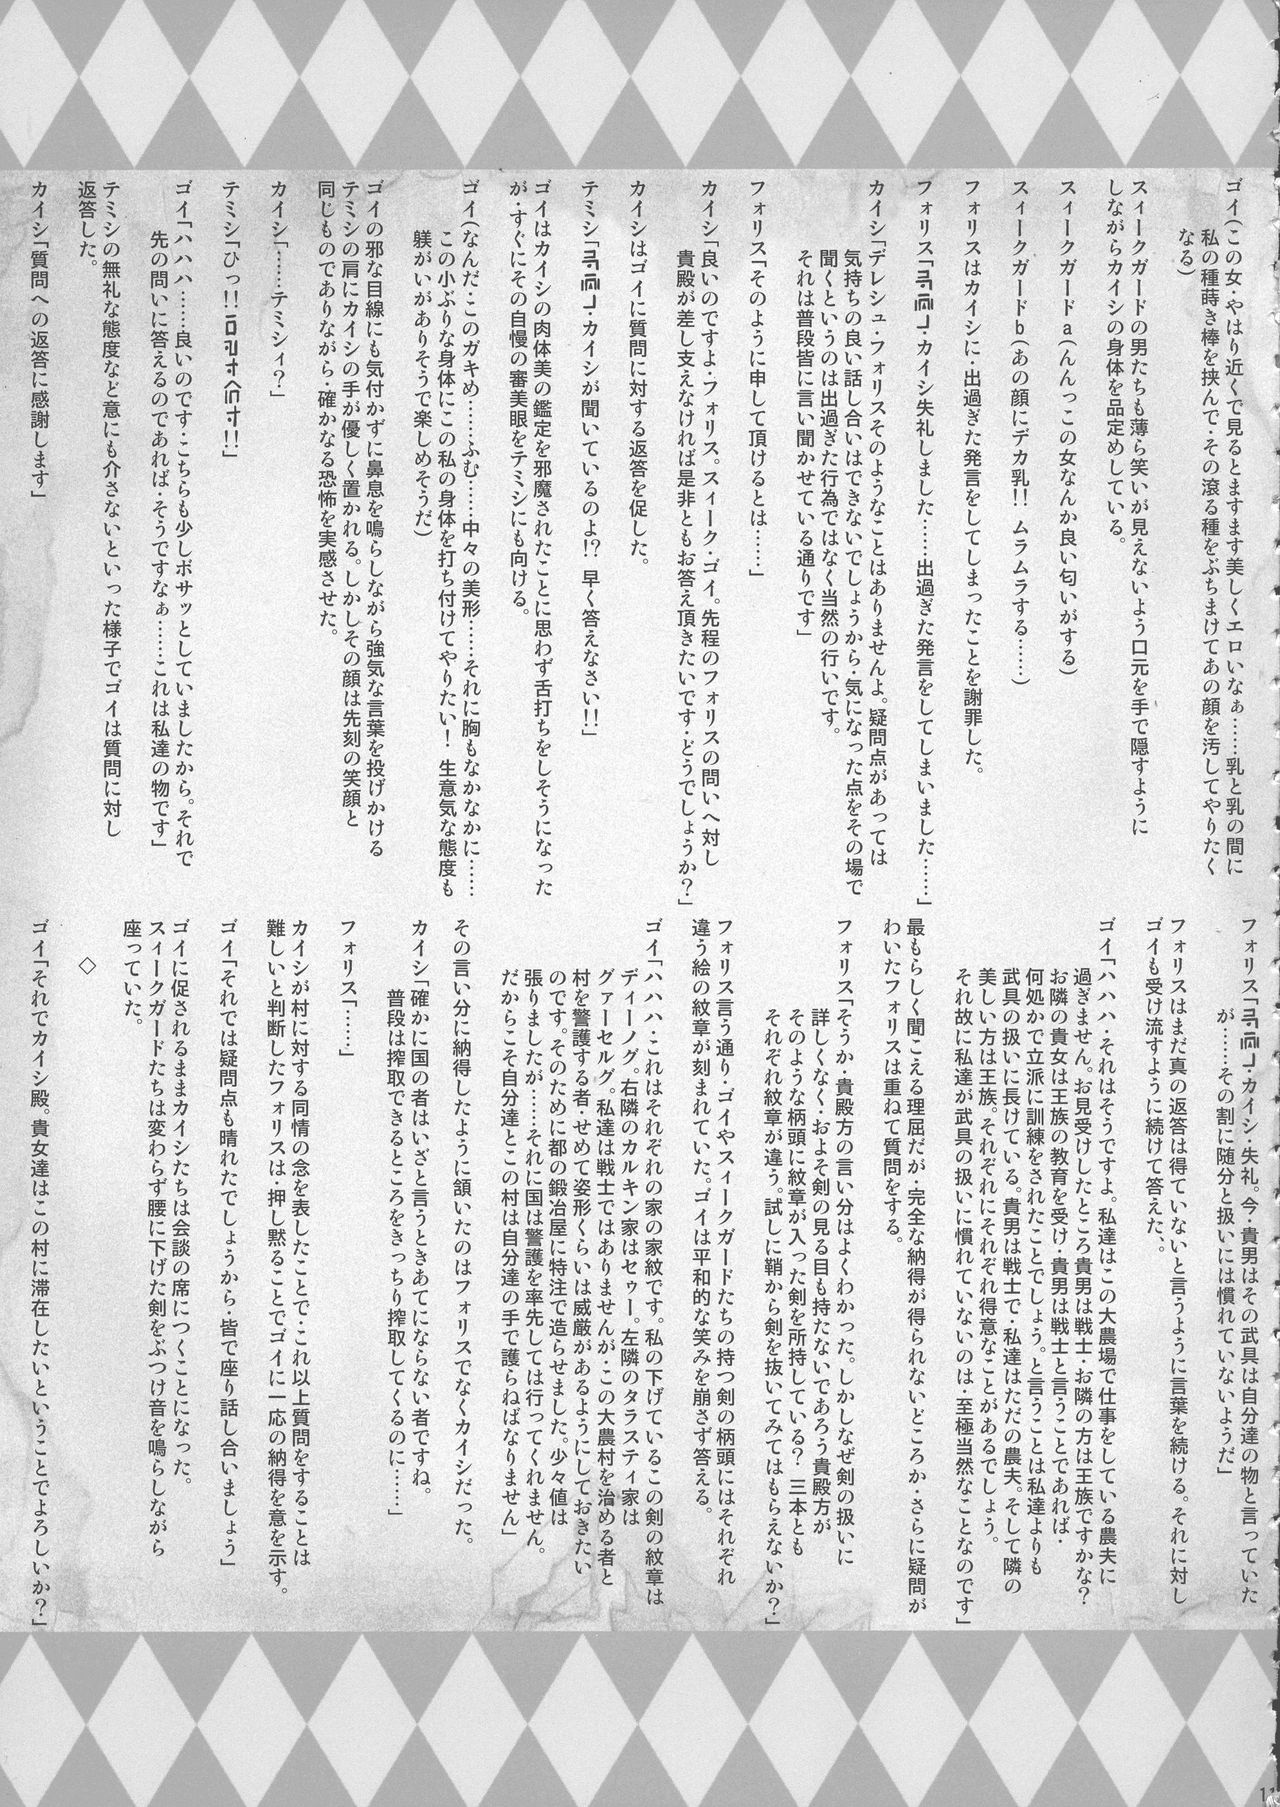 ゴイ(この女・やはり近くで見るとますます美しくエロいなぁ……乳と乳の間に
私の種蒔き棒を挟んで・その滾る種をぶちまけてあの顔を汚してやりたく
なる)
スィークガードの男たちも薄ら笑いが見えないよう口元を手で隠すように
しながらカイシの身体を品定めしている。
スィークガードa(んんっこの女なんか良い匂いがする)
スィークガードb(あの顔にデカ乳!! ムラムラする……)
フォリスはカイシに・出過ぎた発言をしてしまったことを謝罪した。
カイシ失礼しました……出過ぎた発言をしてしまいました……」
カイシ「デレシュ・フォリスそのようなことはありませんよ。疑問点があっては
気持ちの良い話し合いはできないでしょうから・気になった点をその場で
聞くというのは出過ぎた行為ではなく当然の行いです。
それは普段皆に言い聞かせている通りです」
フォリス「そのように申して頂けるとは……」
カイシ「良いのですよ・フォリス。スィーク・ゴイ。先程のフォリスの問いへ対し
貴殿が差し支えなければ是非ともお答え頂きたいです・どうでしょうか?」
カイシはゴイに質問に対する返答を促した。
カイシが聞いているのよ!? 早く答えなさい!!」
カイシ「……テミシィ?」
テミシ「ひっ!!
ゴイ「ハハハ……良いのです・こちらも少しボサッとしていましたから。それで
先の問いに答えるのであれば・そうですなぁ……これは私達の物です」
テミシの無礼な態度など意にも介さないといった様子でゴイは質問に対し
返答した。
カイシ「質問への返答に感謝します」
カイシ・失礼。今・貴男はその武具は自分達の物と言っていた
が……その割に随分と扱いには慣れていないようだ」
フォリスはまだ真の返答は得ていないと言うように言葉を続ける。それに対し
ゴイも受け流すように続けて答えた。。
ゴイ「ハハハ・それはそうですよ。私達はこの大農場で仕事をしている農夫に
過ぎません。お見受けしたところ貴男は戦士・お隣の方は王族ですかな?
お隣の貴女は王族の教育を受け・貴男は戦士と言うことであれば・
何処かで立派に訓練をされたことでしょう。と言うことは私達よりも
武具の扱いに長けている。貴男は戦士で・私達はただの農夫。そして隣の
美しい方は王族。それぞれにそれぞれ得意なことがあるでしょう。
それ故に私達が武具の扱いに慣れていないのは・至極当然なことなのです」
最もらしく聞こえる理屈だが・完全な納得が得られないどころか・さらに疑問が
わいたフォリスは重ねて質問をする。
フォリス「そうか・貴殿方の言い分はよくわかった。しかしなぜ剣の扱いに
詳しくなく・およそ剣の見る目も持たないであろう貴殿方が
そのような柄頭に紋章が入った剣を所持している? 三本とも
それぞれ紋章が違う。試しに鞘から剣を抜いてみてはもらえないか?」
フォリス言う通り・ゴイやスィークガードたちの持つ剣の柄頭にはそれぞれ
違う絵の紋章が刻まれていた。ゴイは平和的な笑みを崩さず答える。
ゴイ「ハハハ・これはそれぞれの家の家紋です。私の下げているこの剣の紋章は
ディーノグ。右隣のカルキン家はセゥー。左隣のタラスティ家は
グァーセルグ。私達は戦士ではありませんが・この大農村を治める者と
村を警護する者・せめて姿形くらいは威厳があるようにしておきたい
のです。そのために都の鍛冶屋に特注で造らせました。少々値は
張りましたが……それに国は警護を率先しては行ってくれません。
だからこそ自分達とこの村は自分達の手で護らねばなりません」
その言い分に納得したように頷いたのはフォリスでなくカイシだった。
カイシ「確かに国の者はいざと言うときあてにならない者ですね。
普段は搾取できるところをきっちり搾取してくるのに……」
フォリス「……」
カイシが村に対する同情の念を表したことで・これ以上質問をすることは
難しいと判断したフォリスは・押し黙ることでゴイに一応の納得を意を示す。
ゴイ「それでは疑問点も晴れたでしょうから・皆で座り話し合いましょう」
ゴイに促されるままカイシたちは会談の席につくことになった。
スィークガードたちは変わらず腰に下げた剣をぶつけ音を鳴らしながら
座っていた。
◇
ゴイ「それでカイシ殿。貴女達はこの村に滞在したいということでよろしいか?」
11